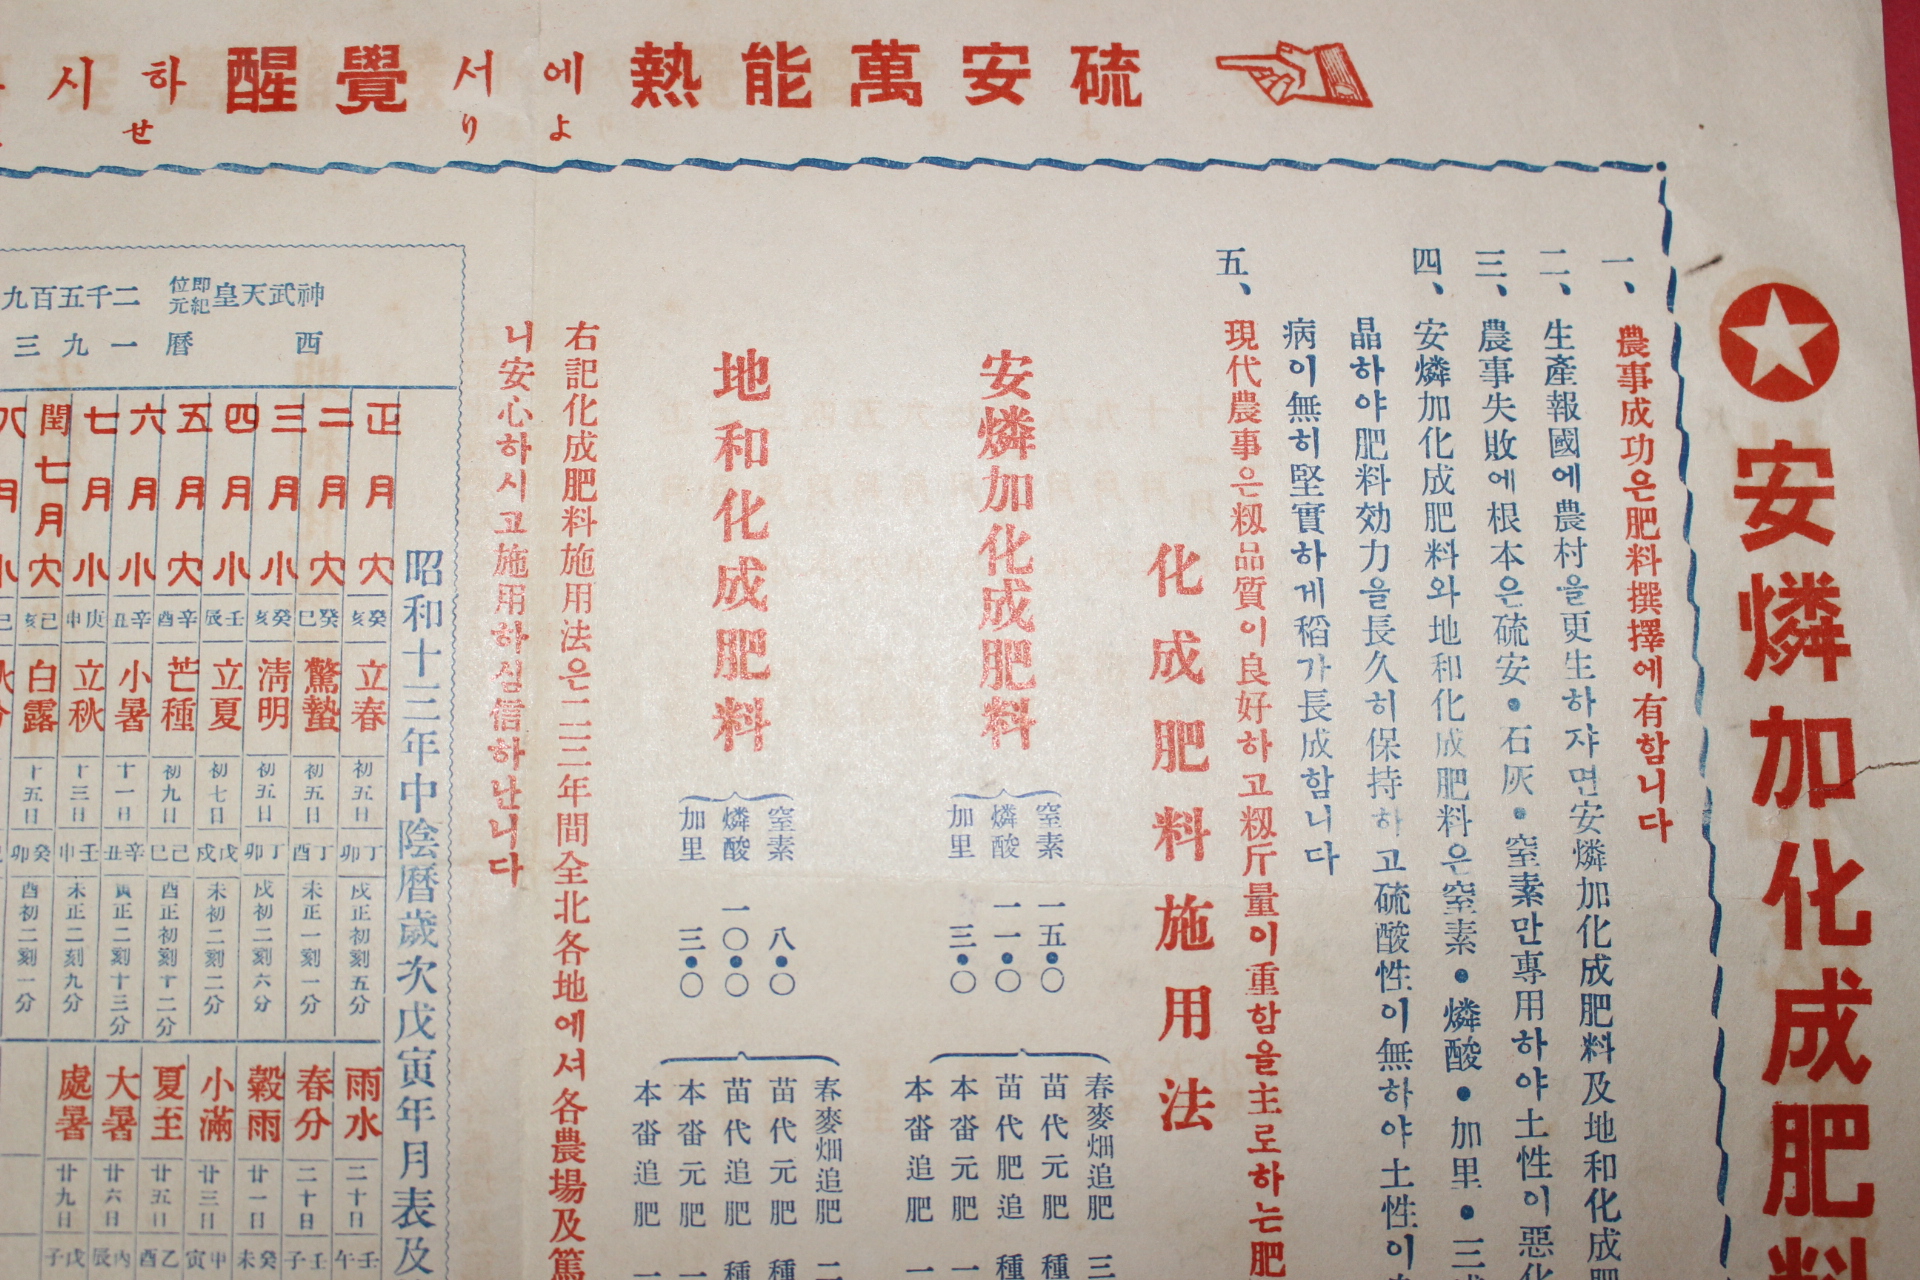 硫安萬能熱에서覺醒하시
よりせ
安燐加化成肥料
一、農事成功은肥料撰擇에有함니다
二、生產報國에農村을更生하쟈면安燐加化成肥料及地和化成肥
三、農事失敗에根本은硫安・石灰・窒素만専用하야土性이惡化
四、安燐加化成肥料와地和化成肥料은窒素・燐酸・加里・三
晶하야肥料効力을長久히保持하고硫酸性이無하야土性이
病이無히堅實하게稻가長成함니다
五、現代農事은籾品質이良好하고籾斤量이重함을主로하는肥
化成肥料施用法
安燐加化成肥料
窒素 一五・〇
燐酸 一一・〇
加里 三・〇
春麥畑追肥 三
苗代元肥 種
苗代肥追 種
本畓元肥 一
本畓追肥 一
地和化成肥料
窒素 八・〇
燐酸 一〇・〇
加里 三・〇
春麥畑追肥 二
苗代元肥 種
苗代追肥 種
本畓元肥 一
本畓追肥 一
右記化成肥料施用法은二三年間全北各地에셔各農場及篤
니安心하시고施用하심信하난니다
神武天皇即位紀元二千五百九
西曆一九三
昭和十三年中陰曆歲次戊寅年月表及
正月大 癸亥 立春 初五日 丁卯 戌正初刻五分 雨水 二十日 壬午
二月大 癸巳 驚蟄 初五日 丁酉 未正一刻一分 春分 二十日 壬子
三月小 癸亥 清明 初五日 丁卯 戌初二刻六分 穀雨 廿一日 癸未
四月小 壬辰 立夏 初七日 戊戌 未初二刻二分 小滿 廿三日 甲寅
五月大 辛酉 芒種 初九日 己巳 酉正初刻十二分 夏至 廿五日 乙酉
六月小 辛丑 小暑 十一日 辛丑 寅正二刻十三分 大暑 廿六日 丙辰
七月小 庚申 立秋 十三日 壬申 未正二刻九分 處暑 廿九日 戊子
閏七月大 己亥 白露 十五日 癸卯 酉初二刻一分
八月小